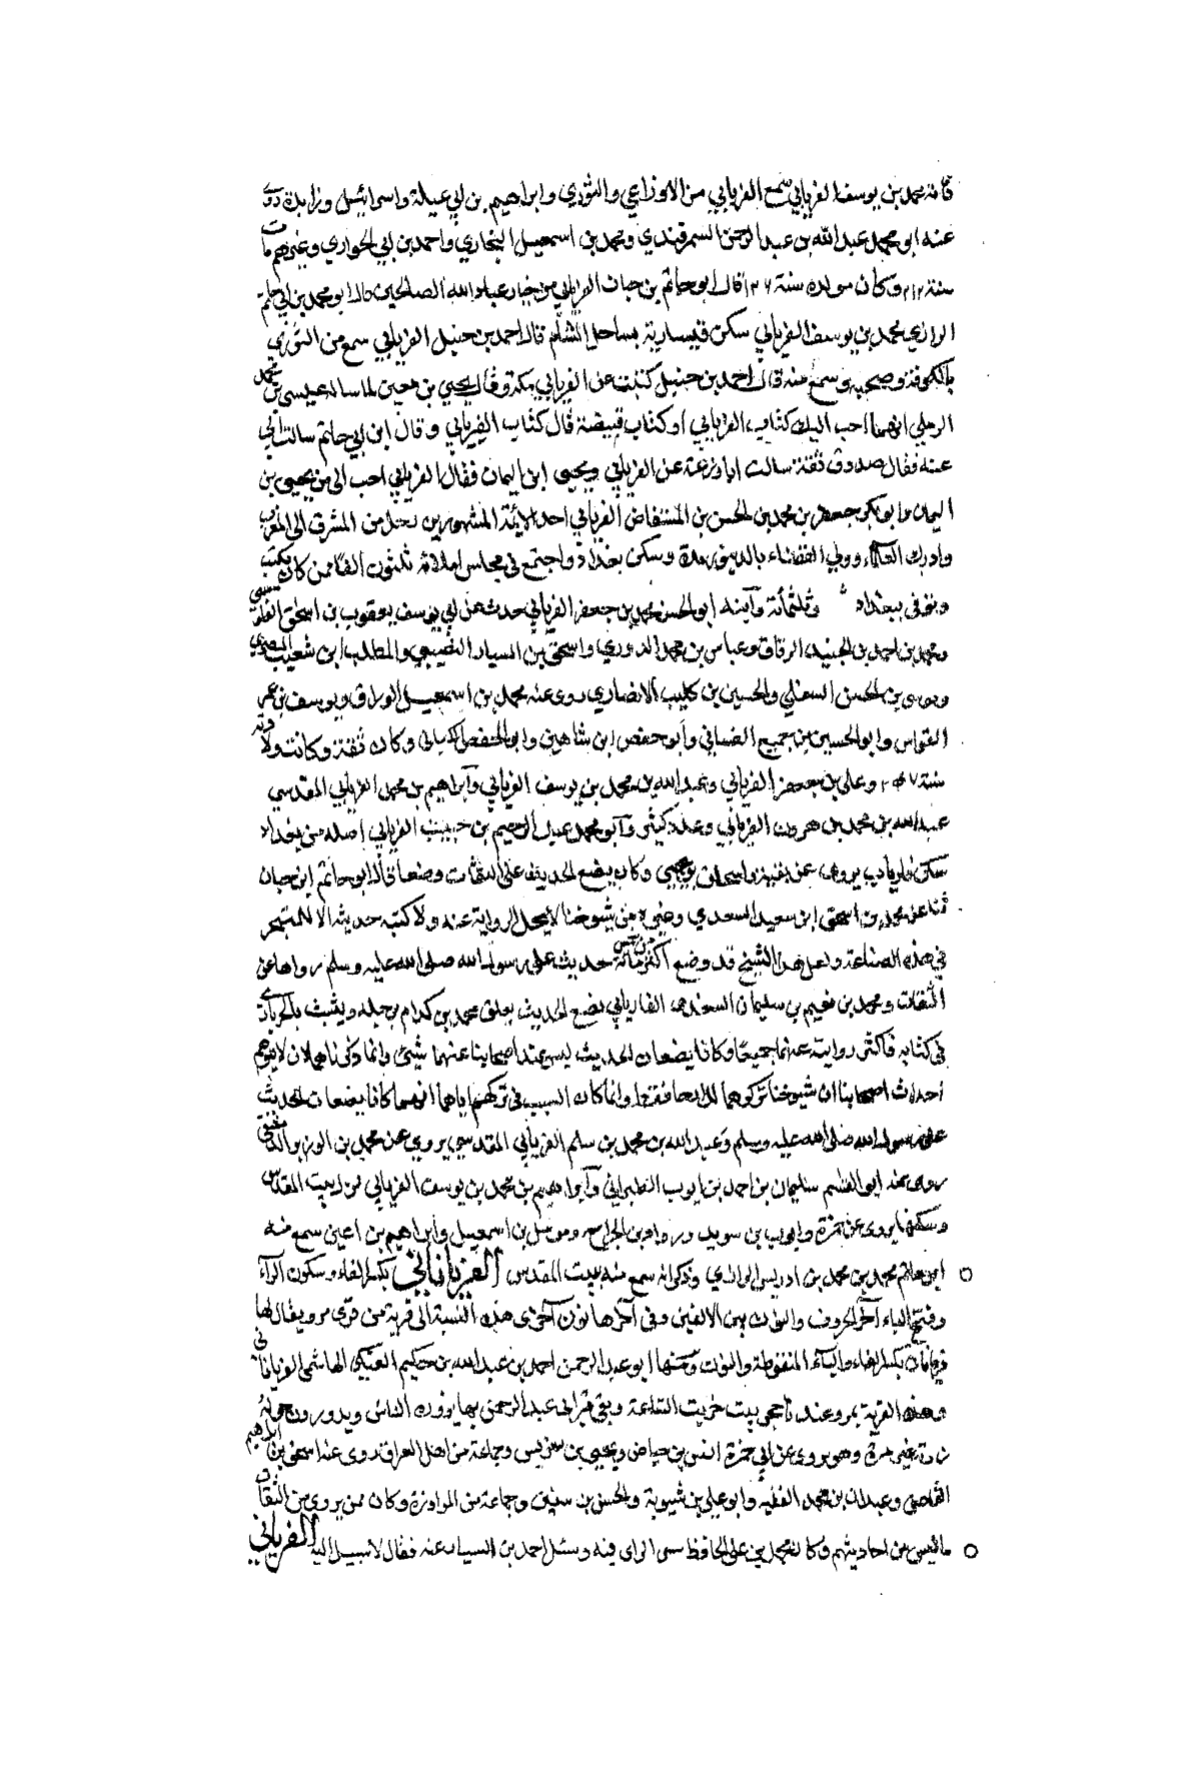 فانه محمد بن يوسف الفريابي سمع الفريابي من الاوزاعي والثوري وابراهيم بن ابي عبلة واسرائيل وزايدة روى
عنه ابو محمد عبد الله بن عبد الرحمن السمرقندي ومحمد بن اسمعيل البخاري واحمد بن ابي الحواري وغيرهم مات
سنة ٢١٢ وكان مولده سنة ١٢٦ قال ابو حاتم بن حبان الفريابي من خيار عباد الله الصالحين قال ابو محمد بن ابي حاتم
الرازي محمد بن يوسف الفريابي سكن قيسارية بساحل الشام قال احمد بن حنبل الفريابي سمع من الثوري
بالكوفة وصحبه وسمع منه قال احمد بن حنبل كتبت عن الفريابي بمكة وقال يحيى بن معين لما ساله عيسى بن محمد
الرملي ايهما احب اليك كتاب الفريابي او كتاب قبيصة قال كتاب الفريابي وقال ابن ابي حاتم سالت ابي
عنه فقال صدوق ثقة سالت ابا زرعة عن الفريابي ويحيى ابن اليمان فقال الفريابي احب الي من يحيى بن
اليمان وابو بكر جعفر بن محمد بن الحسن بن المستفاض الفريابي احد الايمة المشهورين رحل من المشرق الى المغرب
وادرك العلماء وولي القضاء بالدينور مدة وسكن بغداد واجتمع في مجلس املائه ثلثون الفا ممن كان يكتب
وتوفي ببغداد وثلثمائة وابنه ابو الحسن محمد بن جعفر الفريابي حدث عن ابي يوسف يعقوب بن اسحق القلوسي
ومحمد بن احمد بن الجنيد الرقاق وعباس بن محمد الدوري واسحق بن السيار النصيبي والمطلب ابن شعيب المصري
وموسى بن الحسن السقلي والحسين بن كليب الانصاري روى عنه محمد بن اسمعيل الوراق ويوسف بن عمر
القواس وابو الحسين بن جميع الغساني وابو حفص ابن شاهين وابو حفص الكتاني وكان ثقة وكانت ولادته
سنة ٢٤٧ وعلي بن جعفر الفريابي وعبد الله بن محمد بن يوسف الفريابي وابراهيم بن محمد الفريابي المقدسي
عبد الله بن محمد بن هرون الفريابي وعدد كثير وابو محمد عبد الرحيم بن حبيب الفريابي اصله من بغداد
سكن فارياب يروي عن بقية واسحاق بن نجيح وكان يضع الحديث على الثقات وضعا قال ابو حاتم ابن حبان
ثنا عنه محمد بن اسحق ابن سعيد السعدي وغيره من شيوخنا لا يحل الرواية عنه ولا كتبة حديثه الا للمتبحر
في هذه الصناعة ولعل هذا الشيخ قد وضع اكثر من خمس مائة حديث على رسول الله صلى الله عليه وسلم رواها عن
الثقات ومحمد بن تميم بن سليمان السعدي الفاريابي يضع الحديث يعلق محمد بن كرام برجله ويشبث بالجوباري
في كتابه فاكثر روايته عنهما جميعا وكانا يضعان الحديث ليس عند اصحابنا عنهما شيئ وانما ذكرناهما لان لا يتوهم
احداث اصحابنا ان شيوخنا تركوهما للارجا فقط وانما كان السبب في تركهم اياهما انهما كانا يضعان الحديث
على رسول الله صلى الله عليه وسلم وعبد الله بن محمد بن سلم الفريابي المقدسي يروي عن محمد بن الوزير الدمشقي
روى عنه ابو القسم سليمان بن احمد بن ايوب الطبراني وابراهيم بن محمد بن يوسف الفريابي من بيت المقدس
وسكنها يروى عن ضمرة وايوب بن سويد ورواد بن الجراح ومومل بن اسمعيل وابراهيم بن اعين سمع منه
ابو حاتم محمد بن ادريس الرازي وذكر انه سمع منه ببيت المقدس الفرياناني بكسر الفاء وسكون الرآء
وفتح الياء آخر الحروف والنون بين الالفين وفي آخرها نون آخرى هذه النسبة الى قرية من قرى مرو يقال لها
فريانان بكسر الفاء والياء المنقوطة والنون ومنها ابو عبد الرحمن احمد بن عبد الله بن حكيم العتكي الهاشمي الفرياناني
وهذه القرية بمرو عند خربت الساعة وبقي قبر ابى عبد الرحمن بها يزوره الناس ويدورون حوله
زرته غير مرة وهو يروي عن ابي ضمرة انس بن عياض ويحيى بن ضريس وجماعة من اهل العراق روى عنه اسحق بن ابراهيم
القاضي وعبدان بن محمد الفقيه وابو علي بن شبوية والحسن بن سفين وجماعة من المراوزة وكان ممن يروي عن الثقات
ما ليس من احاديثهم وكان محمد بن علي الحافظ سيئ الراى فيه وسئل احمد بن السيار عنه فقال لا سبيل اليه الفرياني